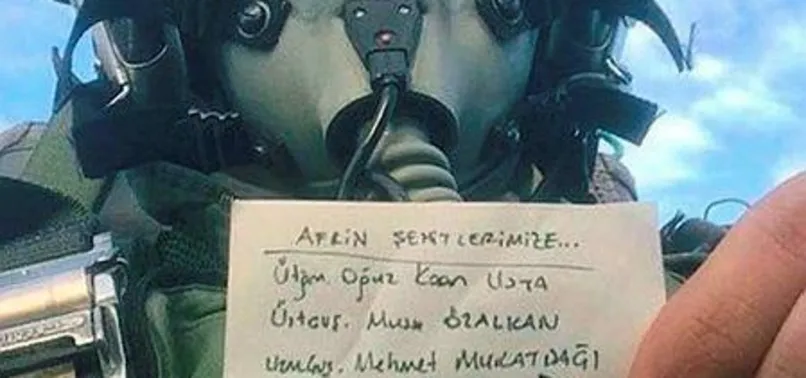 AFRİN ŞEHİTLERİMİZE...
Ütğm. Oğuz Kaan Usta
Üstçvş. Musa ÖZALKAN
Uzm.Çvş. Mehmet MURATDAĞI